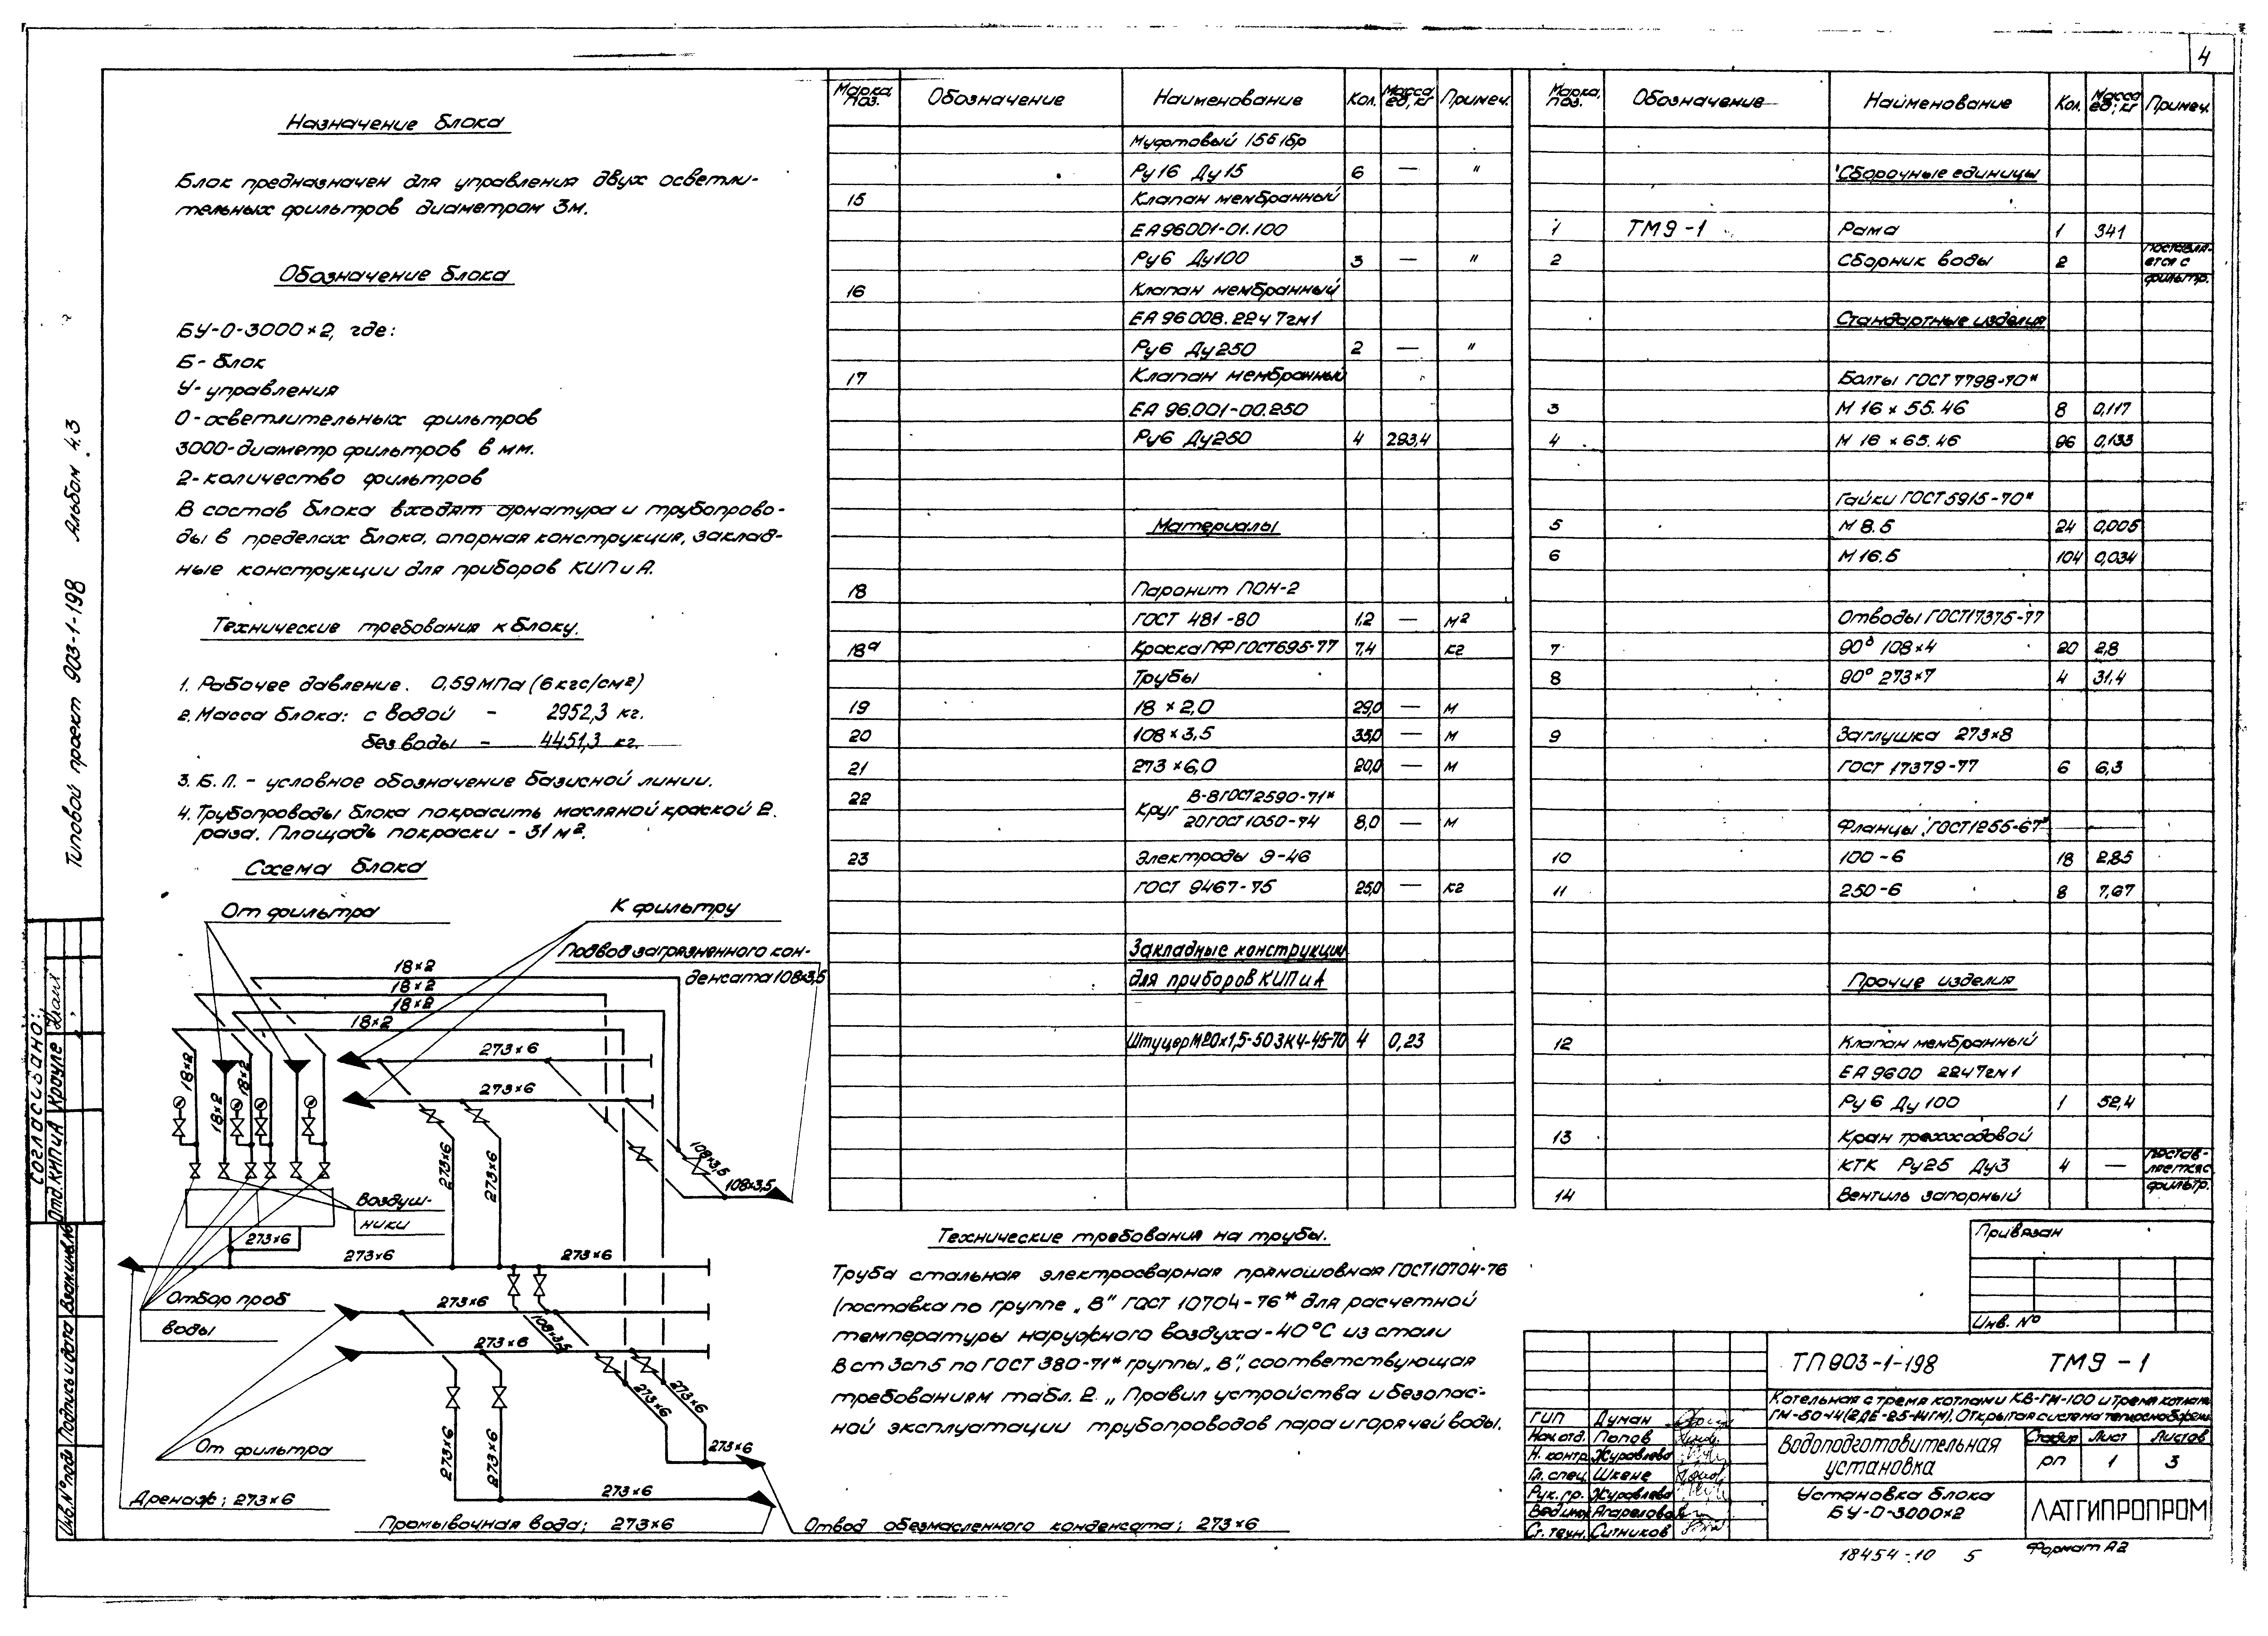 4
Назначение блока
Блок предназначен для управления двух осветли-
тельных фильтров диаметром 3м.
Обозначение блока
БУ-О-3000×2, где:
Б- блок
У- управления
О-осветлительных фильтров
3000-диаметр фильтров в мм.
2- количество фильтров
В состав блока входят арматура и трубопрово-
ды в пределах блока, опорная конструкция, заклад-
ные конструкции для приборов КИП и А.
Технические требования к блоку.
1. Рабочее давление. 0,59 МПа (6 кгс/см²)
2. Масса блока: с водой - 2952,3 кг.
без воды - 4451,3 кг.
3. Б. Л. - условное обозначение базисной линии.
4. Трубопроводы блока покрасить масляной краской 2
раза. Площадь покраски - 31 м².
Схема блока
От фильтра
К фильтру
Подвод загрязненного кон-
денсата 108×3,5
18×2
18×2
18×2
18×2
273×6
273×6
18×2
18×2
18×2
273×6
273×6
108×3,5
108×3,5
Воздуш-
ники
273×6
273×6
273×6
Отбор проб
воды
273×6
273×6
108×3,5
273×6
273×6
273×6
273×6
273×6
273×6
От фильтра
Дренаж; 273×6
Промывочная вода; 273×6
Отвод обезмасленного конденсата; 273×6
Марка, поз. Обозначение Наименование Кол. Масса ед, кг Примеч.
Муфтовый 15б1бр
Ру16 Ду15 6 — "
15 Клапан мембранный
ЕА96001-01.100
Ру6 Ду100 3 — "
16 Клапан мембранный
ЕА 96008.22ч7гм1
Ру6 Ду250 2 — "
17 Клапан мембранный
ЕА 96.001-00.250
Ру6 Ду250 4 293,4
Материалы
18 Паронит ПОН-2
ГОСТ 481-80 1,2 — м²
18а Краска ПФ ГОСТ695-77 7,4 кг
Трубы
19 18 × 2,0 29,0 — м
20 108 × 3,5 35,0 — м
21 273 × 6,0 20,0 — м
22 Круг В-8 ГОСТ2590-71*
20 ГОСТ 1050-74 8,0 — м
23 Электроды Э-46
ГОСТ 9467-75 25,0 — кг
Закладные конструкции
для приборов КИП и А
Штуцер М20×1,5-50 ЗК4-45-70 4 0,23
Марка, поз. Обозначение Наименование Кол. Масса ед; кг Примеч.
Сборочные единицы
1 ТМ9-1 Рама 1 341
2 Сборник воды 2 поставля-
ется с
фильтр.
Стандартные изделия
Болты ГОСТ 7798-70*
3 М 16 × 55.46 8 0,117
4 М 16 × 65.46 96 0,133
Гайки ГОСТ 5915-70*
5 М 8.5 24 0,005
6 М 16.5 104 0,034
Отводы ГОСТ17375-77
7 90° 108×4 20 2,8
8 90° 273×7 4 31,4
9 Заглушка 273×8
ГОСТ 17379-77 6 6,3
Фланцы ГОСТ1255-67*
10 100-6 18 2,85
11 250-6 8 7,67
Прочие изделия
12 Клапан мембранный
ЕА 9600 22ч7гм1
Ру 6 Ду 100 1 52,4
13 Кран трехходовой
КТК Ру25 Ду3 4 — постав-
ляется с
фильтр.
14 Вентиль запорный
Технические требования на трубы.
Труба стальная электросварная прямошовная ГОСТ10704-76
(поставка по группе „В" ГОСТ 10704-76* для расчетной
температуры наружного воздуха -40°С из стали
В ст 3сп5 по ГОСТ 380-71* группы „В", соответствующая
требованиям табл. 2 „Правил устройства и безопас-
ной эксплуатации трубопроводов пара и горячей воды.
Привязан
Инв. №
ТП 903-1-198 ТМ9-1
Котельная с тремя котлами КВ-ГМ-100 и тремя котлами
ГМ-50-14(2ДЕ-25-14ГМ). Открытая система теплоснабжен.
ГИП Думан
Нач.отд. Попов
Н. контр. Журавлева
Гл. спец. Шкене
Рук. гр. Журавлева
Вединж. Агарелова
Ст. техн. Ситников
Водоподготовительная
установка
Стадия Лист Листов
РП 1 3
Установка блока
БУ-О-3000×2
ЛАТГИПРОПРОМ
18454-10 5
Формат А2
Типовой проект 903-1-198 Альбом 4.3
Согласовано:
Отд. КИПиА Крауле
Взам.инв.№
Подпись и дата
Инв.№подл